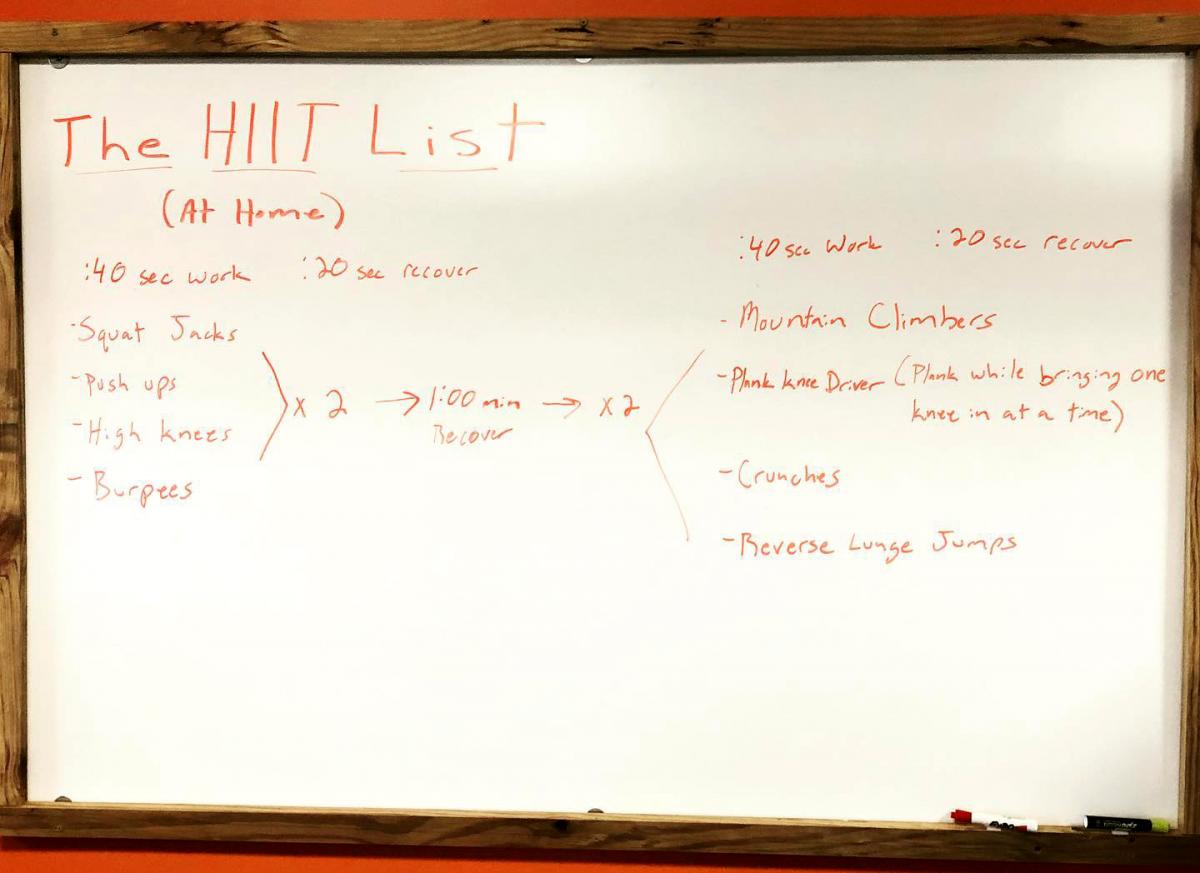 The HIIT List
(At Home)
:40 sec work :20 sec recover
- Squat Jacks
- Push ups
- High knees
- Burpees
x 2 → 1:00 min → x2
Recover
:40 sec work :20 sec recover
- Mountain Climbers
- Plank knee Driver (Plank while bringing one
knee in at a time)
- Crunches
- Reverse Lunge Jumps